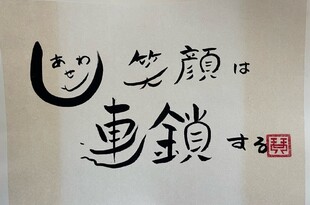 しあわせ 笑顔は
連鎖する